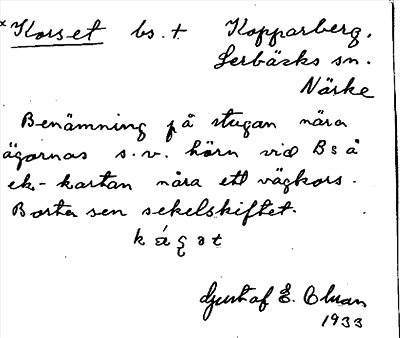 *Korset bs. t Kopparberg.
Lerbäcks sn.
Närke
Benämning på stugan nära
ägornas s.v. hörn vid Bs å
ek-kartan nära ett vägkors.
Borta sen sekelskiftet.
Gustaf E.
1933